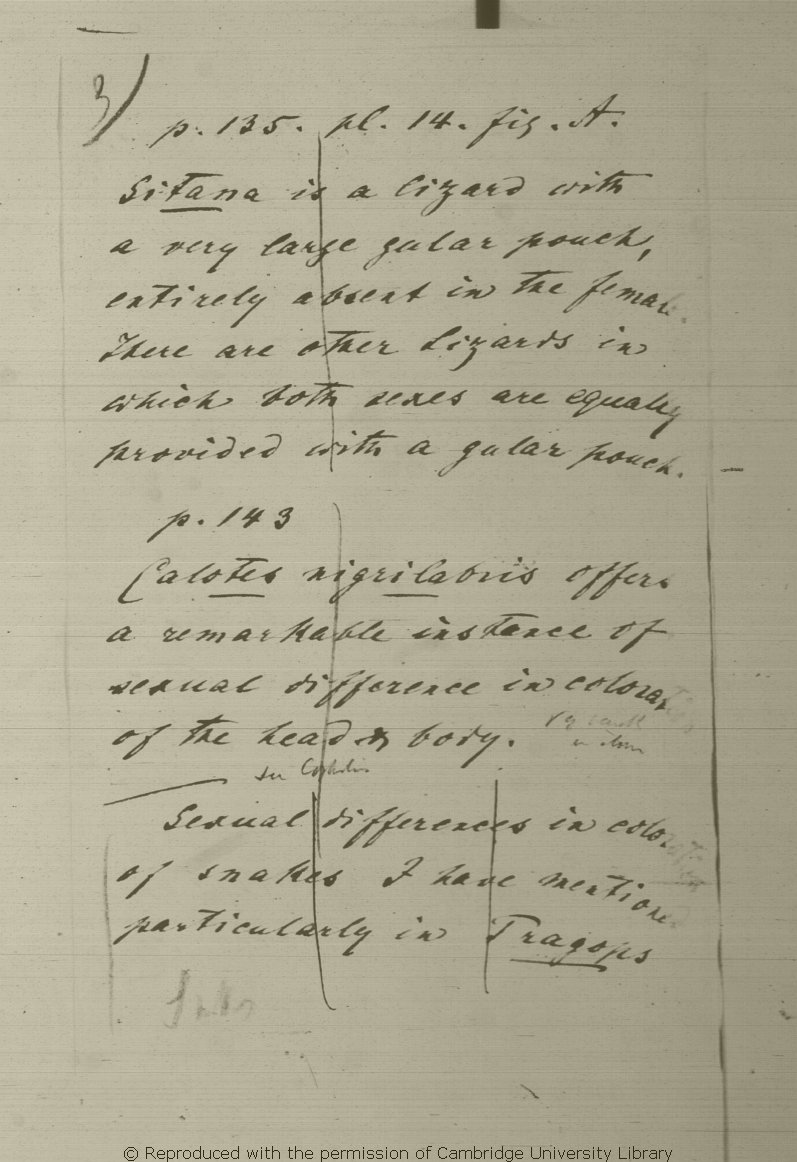 3)
p. 135. pl. 14. fig. A.
Sitana is a lizard with
a very large gular pouch,
entirely absent in the female.
There are other Lizards in
which both sexes are equally
provided with a gular pouch.
p. 143
Calotes nigrilabris offers
a remarkable instance of
sexual difference in coloration
of the head & body.
see
Sexual differences in coloration
of snakes I have mentioned
particularly in Tragops
© Reproduced with the permission of Cambridge University Library